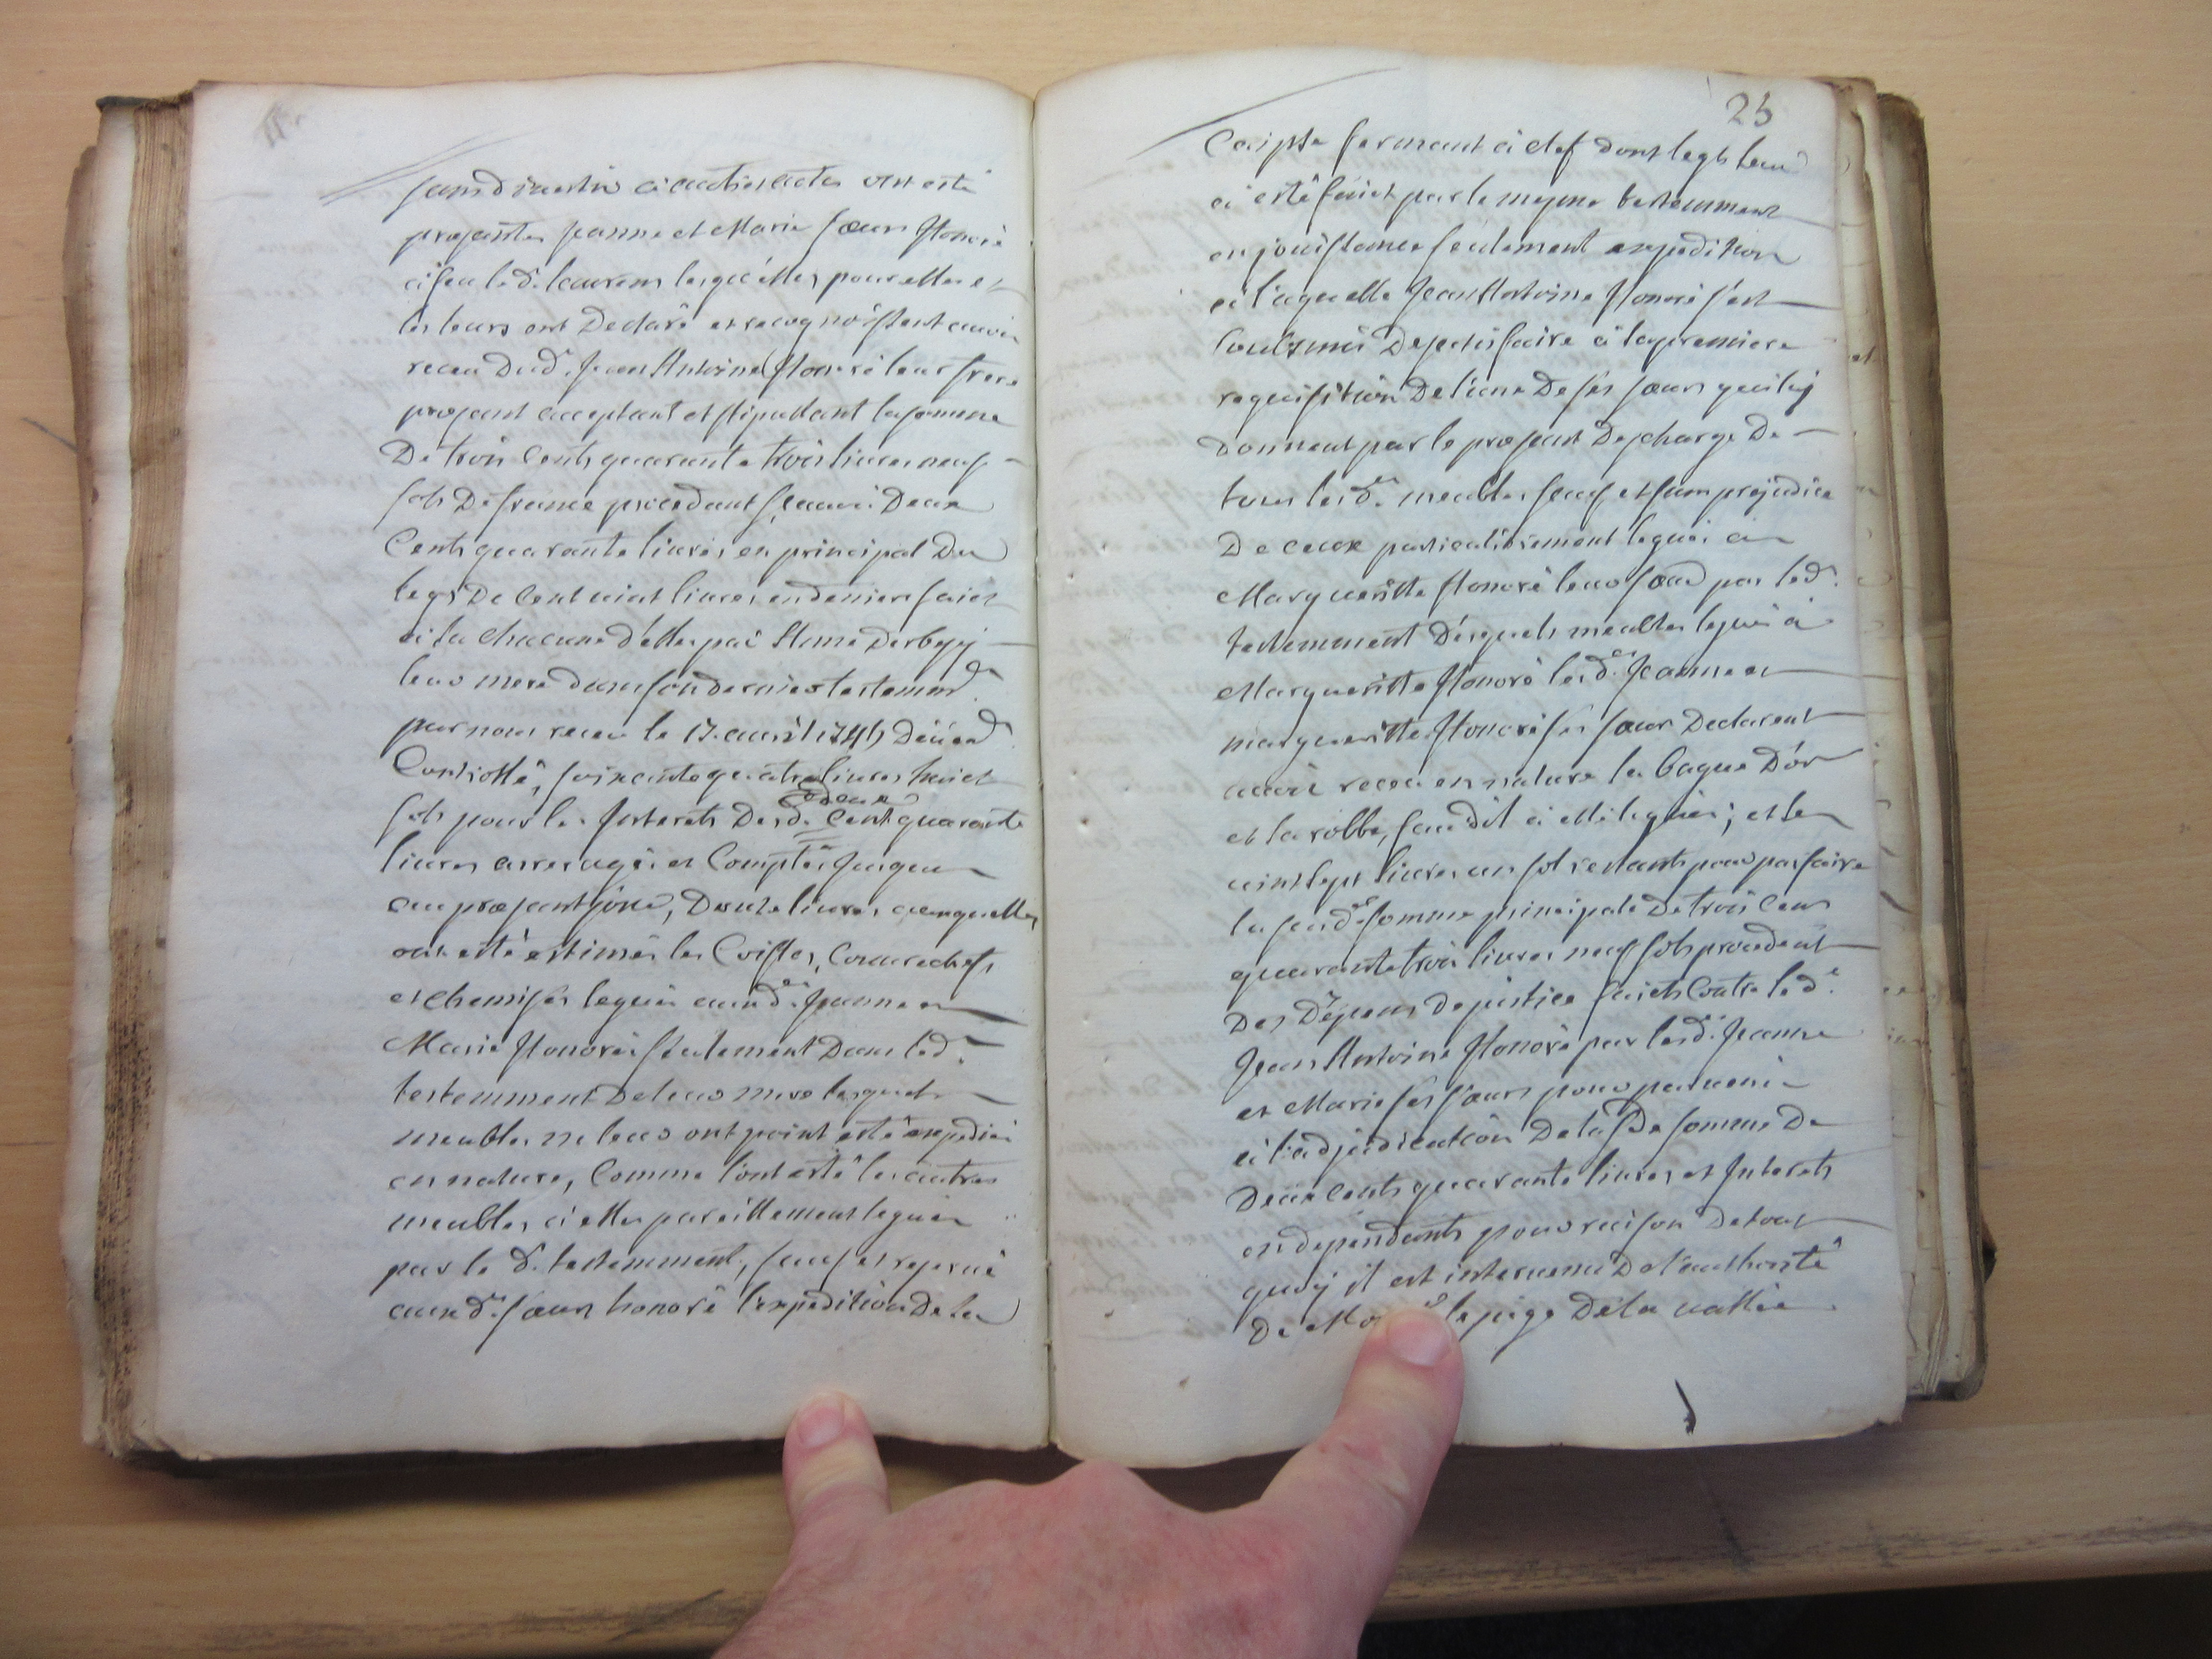 sans divertir a autres actes ont esté
presentes Jeanne et Marie sœurs Honoré
à feu led. Laurens lesquelles pour elles et
les leurs ont Declaré et recognoissent avoir
receu Dud. Jean Antoine Honoré leur frere
present acceptant et stipullant la somme
De trois Cents quarante trois livres neuf
sols De france procedant sçavoir Deux
Cents quarante livres en principal Du
legs De Cent vint livres en deniers faict
à la chacune d'elles par Anne
leur mere dans son dernier testemmt
par nous receu le 17. avril 174 Deüemt
Controllé, soixante quatre livres huict
sols pour les Interets Desd. deux Cent quarante
livres arreragés et Comptés Jusques
au present jour, Douze livres auxquelles
ont esté estimés les Coiffes, Couvrechefs
et chemises legués auxd.es Jeanne et
Marie Honoré seulement Dans led.
testemment De leur mere lesquels
meubles ne leur ont point esté expediés
en nature, Comme l'ont esté les autres
meubles à elles pareillement legués
par le d. testemment, sauf et reservé
auxd. sœurs honoré l'expedition De la
25
Caisse fermant à clef dont legs leur
à esté faict par le mesme testemment
en jouissance seulement expedition
à laquelle Jean Antoine Honoré s'est
soubsmis De satisfaire à la premiere
requisition De l'une De ses sœurs qui luy
Donnent par le present Descharge De
tous lesd. meubles sauf et sans prejudice
De ceux particulierement legués à
Margueritte Honoré leur sœur par led.
testemment Desquels meubles legués à
Margueritte Honoré lesd.es Jeanne et
margueritte Honoré ses sœurs Declarent
avoir receu en nature la bague D'or
et la robbe, susdit à elle legués; et les
vint sept livres un sol restants pour parfaire
la susd.e somme principale De trois Cens
quarante trois livres neuf sols procedent
Des Depens De justice faicts Contre led.
Jean Antoine Honoré par lesd. Jeanne
et Marie ses sœurs pour parvenir
à l'adjudication De la Sde somme De
Deux Cents quarante livres et Interets
en dependants pour raison De tout
quoy il est intervenu De l'authorité
De le juge De la vallée